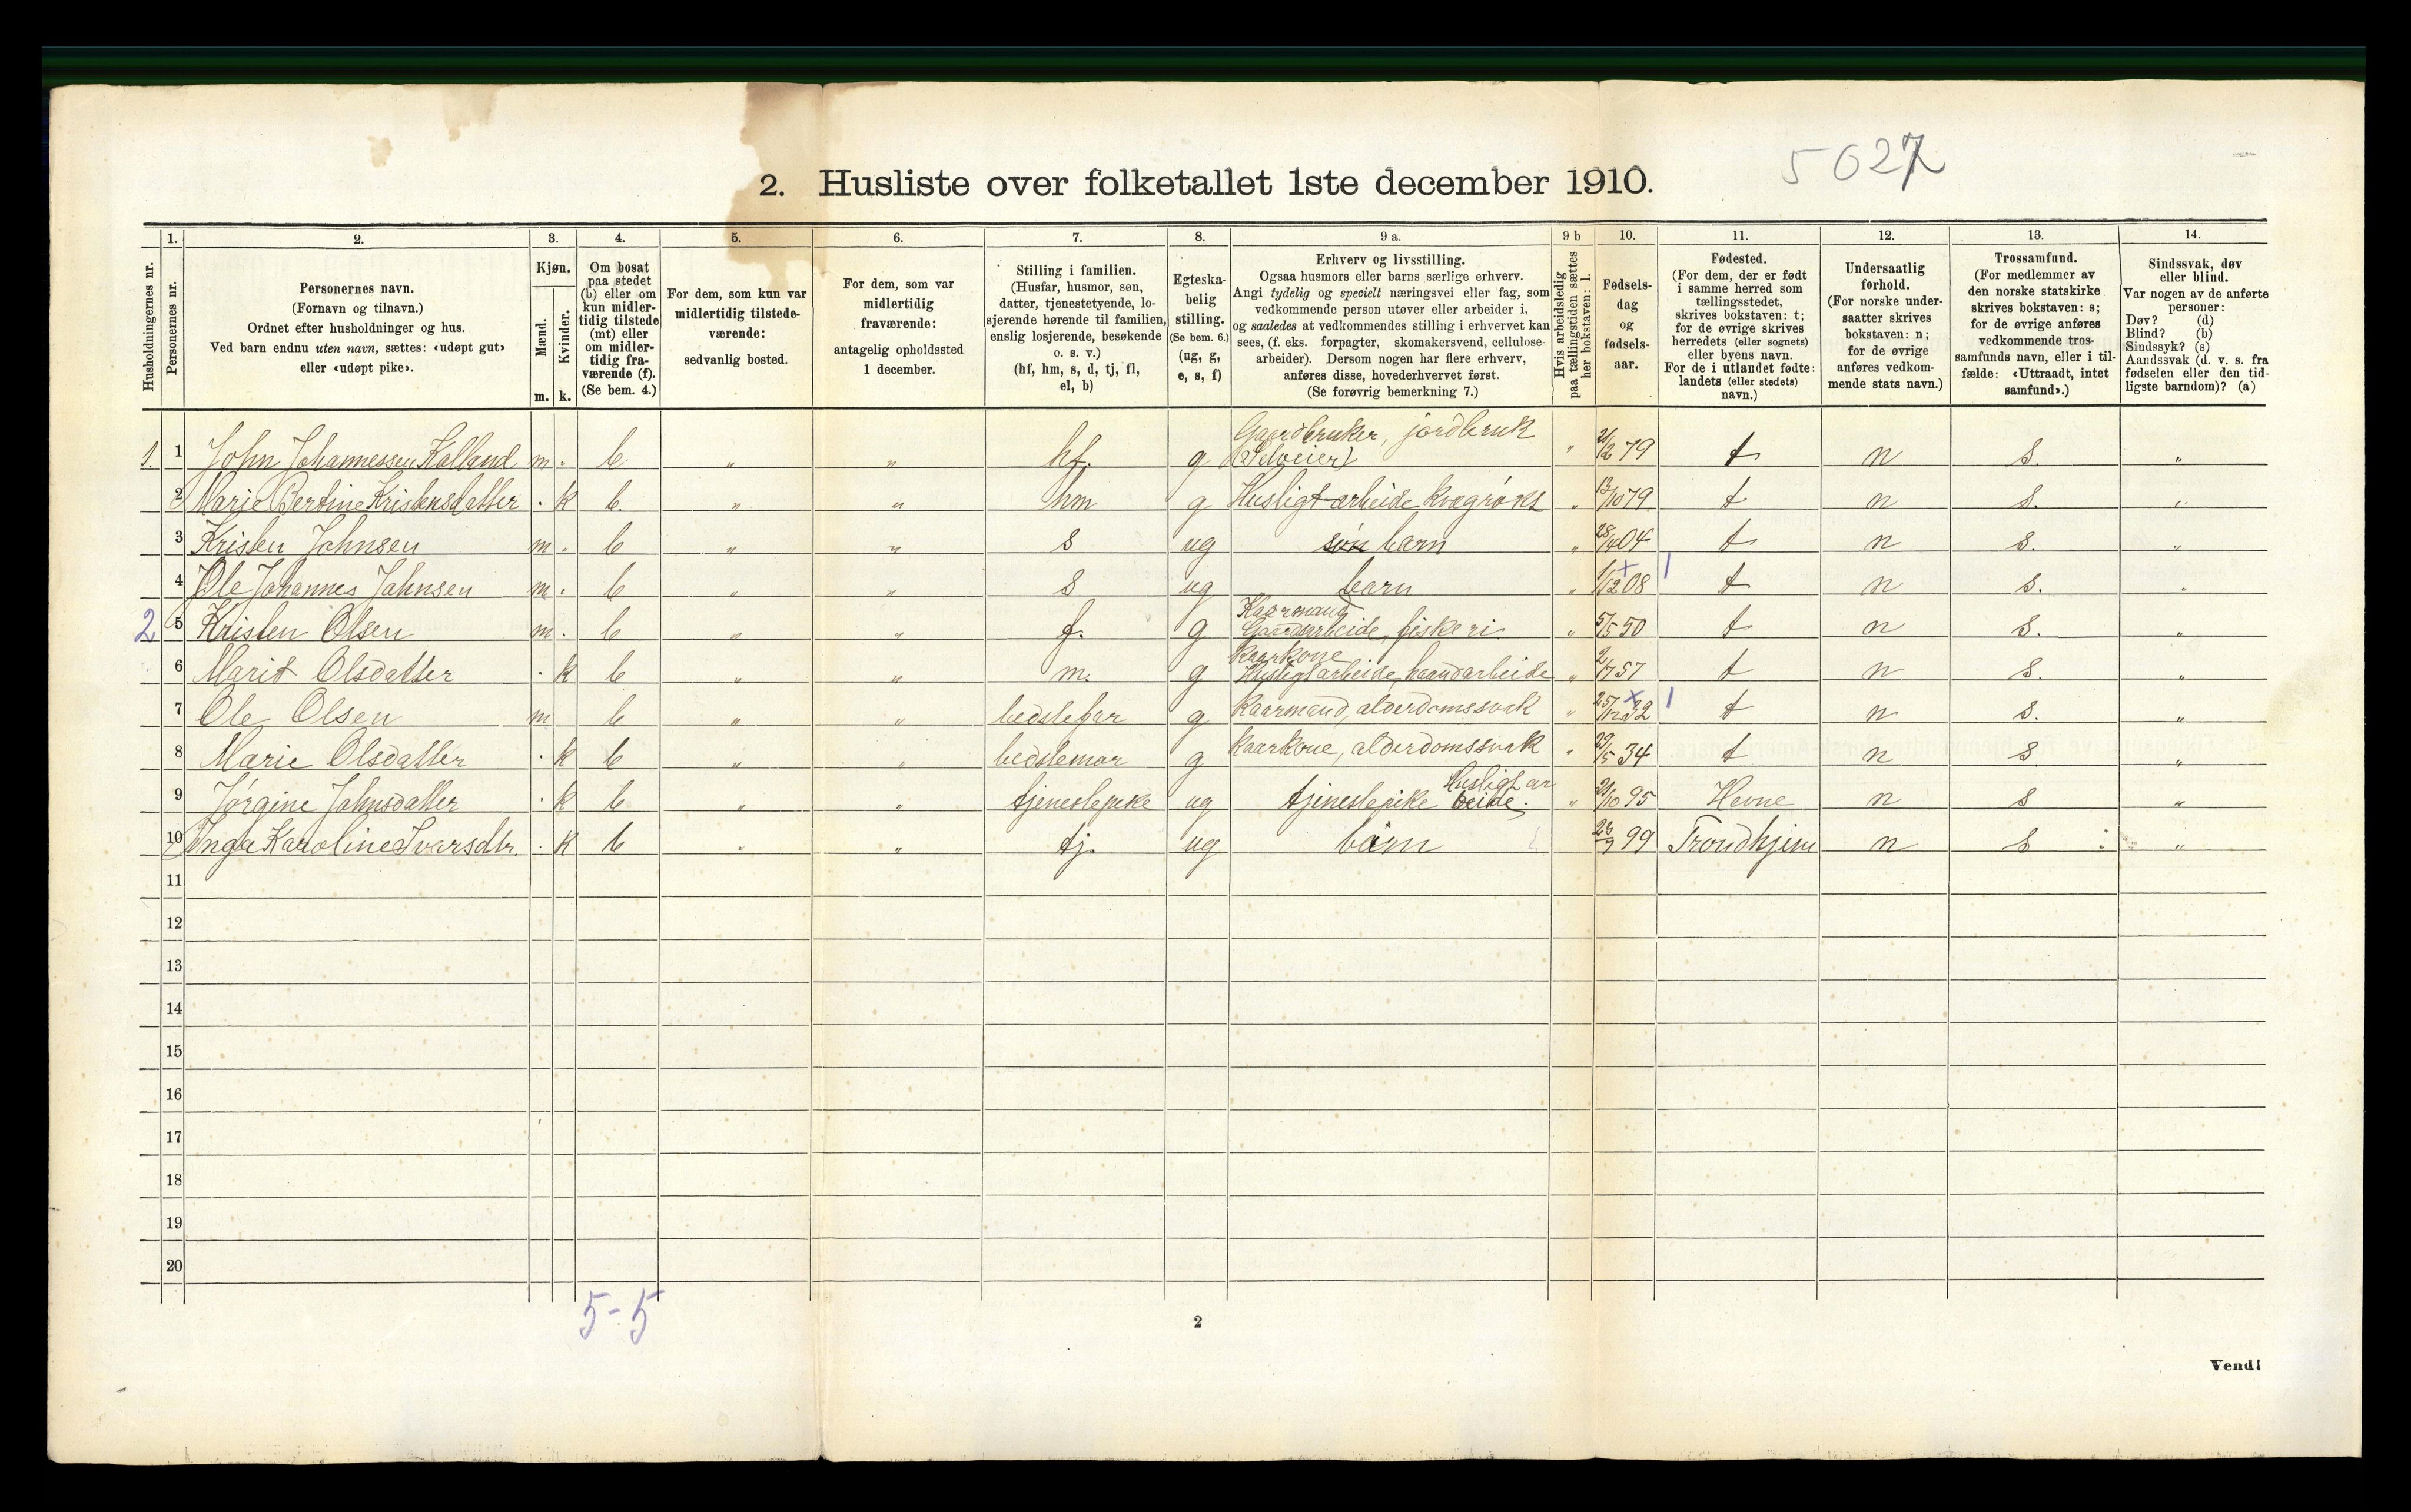 5027
2. Husliste over folketallet 1ste december 1910.
Husholdningernes nr.
1.
Personernes nr.
2.
Personernes navn.
(Fornavn og tilnavn.)
Ordnet efter husholdninger og hus.
Ved barn endnu uten navn, sættes: «udøpt gut»
eller «udøpt pike».
3.
Kjøn.
Mænd.
Kvinder.
m. k.
4.
Om bosat
paa stedet
(b) eller om
kun midler-
tidig tilstede
(mt) eller
om midler-
tidig fra-
værende (f).
(Se bem. 4.)
5.
For dem, som kun var
midlertidig tilstede-
værende:
sedvanlig bosted.
6.
For dem, som var
midlertidig
fraværende:
antagelig opholdssted
1 december.
7.
Stilling i familien.
(Husfar, husmor, søn,
datter, tjenestetyende, lo-
sjerende hørende til familien,
enslig losjerende, besøkende
o. s. v.)
(hf, hm, s, d, tj, fl,
el, b)
8.
Egteska-
belig
stilling.
(Se bem. 6.)
(ug, g,
e, s, f)
9 a.
Erhverv og livsstilling.
Ogsaa husmors eller barns særlige erhverv.
Angi tydelig og specielt næringsvei eller fag, som
vedkommende person utøver eller arbeider i,
og saaledes at vedkommendes stilling i erhvervet kan
sees, (f. eks. forpagter, skomakersvend, cellulose-
arbeider). Dersom nogen har flere erhverv,
anføres disse, hovederhvervet først.
(Se forøvrig bemerkning 7.)
9 b
Hvis arbeidsledig
paa tællingstiden sættes
her bokstaven: l.
10.
Fødsels-
dag
og
fødsels-
aar.
11.
Fødested.
(For dem, der er født
i samme herred som
tællingsstedet,
skrives bokstaven: t;
for de øvrige skrives
herredets (eller sognets)
eller byens navn.
For de i utlandet fødte:
landets (eller stedets)
navn.)
12.
Undersaatlig
forhold.
(For norske under-
saatter skrives
bokstaven: n;
for de øvrige
anføres vedkom-
mende stats navn.)
13.
Trossamfund.
(For medlemmer av
den norske statskirke
skrives bokstaven: s;
for de øvrige anføres
vedkommende tros-
samfunds navn, eller i til-
fælde: «Uttraadt, intet
samfund».)
14.
Sindssvak, døv
eller blind.
Var nogen av de anførte
personer:
Døv? (d)
Blind? (b)
Sindssyk? (s)
Aandssvak (d. v. s. fra
fødselen eller den tid-
ligste barndom)? (a)
1. 1 John Johannessen Kalland m . b. " " hf. g Gaardbruker, jordbruk (Selveier) " 21/2 79 t n s. "
2 Marie Bertine Kristensdatter . k b. " " hm g Husligt arbeide kvægrøkt " 13/10 79 t n s. "
3 Kristen Johnsen m . b " " s ug søn barn " 28/4 04 t n s. "
4 Ole Johannes Johnsen m . b " " s ug barn " 1/12 08 t n s. "
2 5 Kristen Olsen m . b " " f. g Kaarmand Gaardsarbeide, fiskeri " 5/5 50 t n s. "
6 Marit Olsdatter . k b " " m. g Kaarkone Husligt arbeide, haandarbeide " 2/7 57 t n s. "
7 Ole Olsen m b " " bedstefar g Kaarmand, alderdomssvak " 25/12 32 t n s. "
8 Marie Olsdatter . k b " " bedstemor g Kaarkone, alderdomssvak " 29/5 34 t n s. "
9 Jørgine Johnsdatter . k b " " tjenestepike ug tjenestepike Husligt arbeide. " 21/10 95 Hevne n s "
10 Inga Karoline Ivarsdtr . k b " " tj. ug barn 23/7 99 Trondhjem n s "
11
12
13
14
15
16
17
18
19
20
5-5
2
Vend!